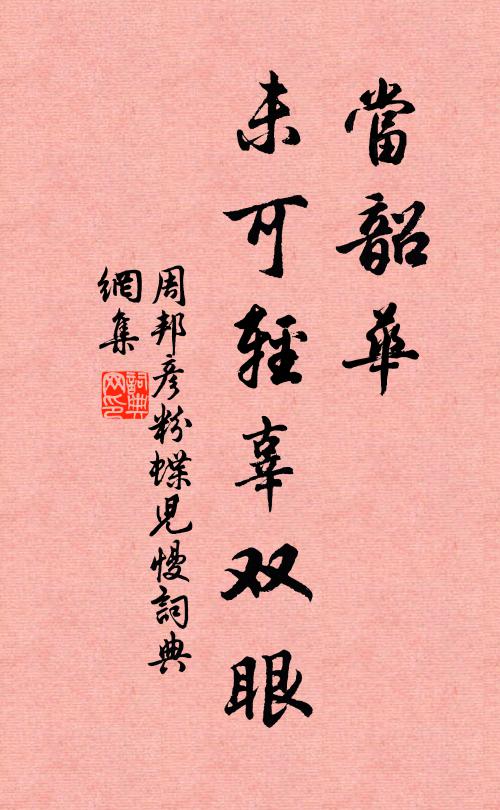 當韶華
未可輕辜双眼
周邦彦粉蝶児慢詞典
網集
詞典
网印